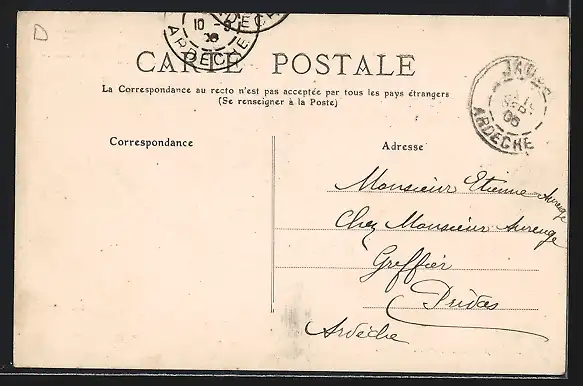 D
10 -9
08
ARDECHE
DECHE
CARTE POSTALE
La Correspondance au recto n'est pas acceptée par tous les pays étrangers
(Se renseigner à la Poste)
JAUJAC
08
ARDECHE
Correspondance
Adresse
Monsieur Etienne Aurenge
Chez Monsieur Aurenge
Greffier
Privas
Ardèche